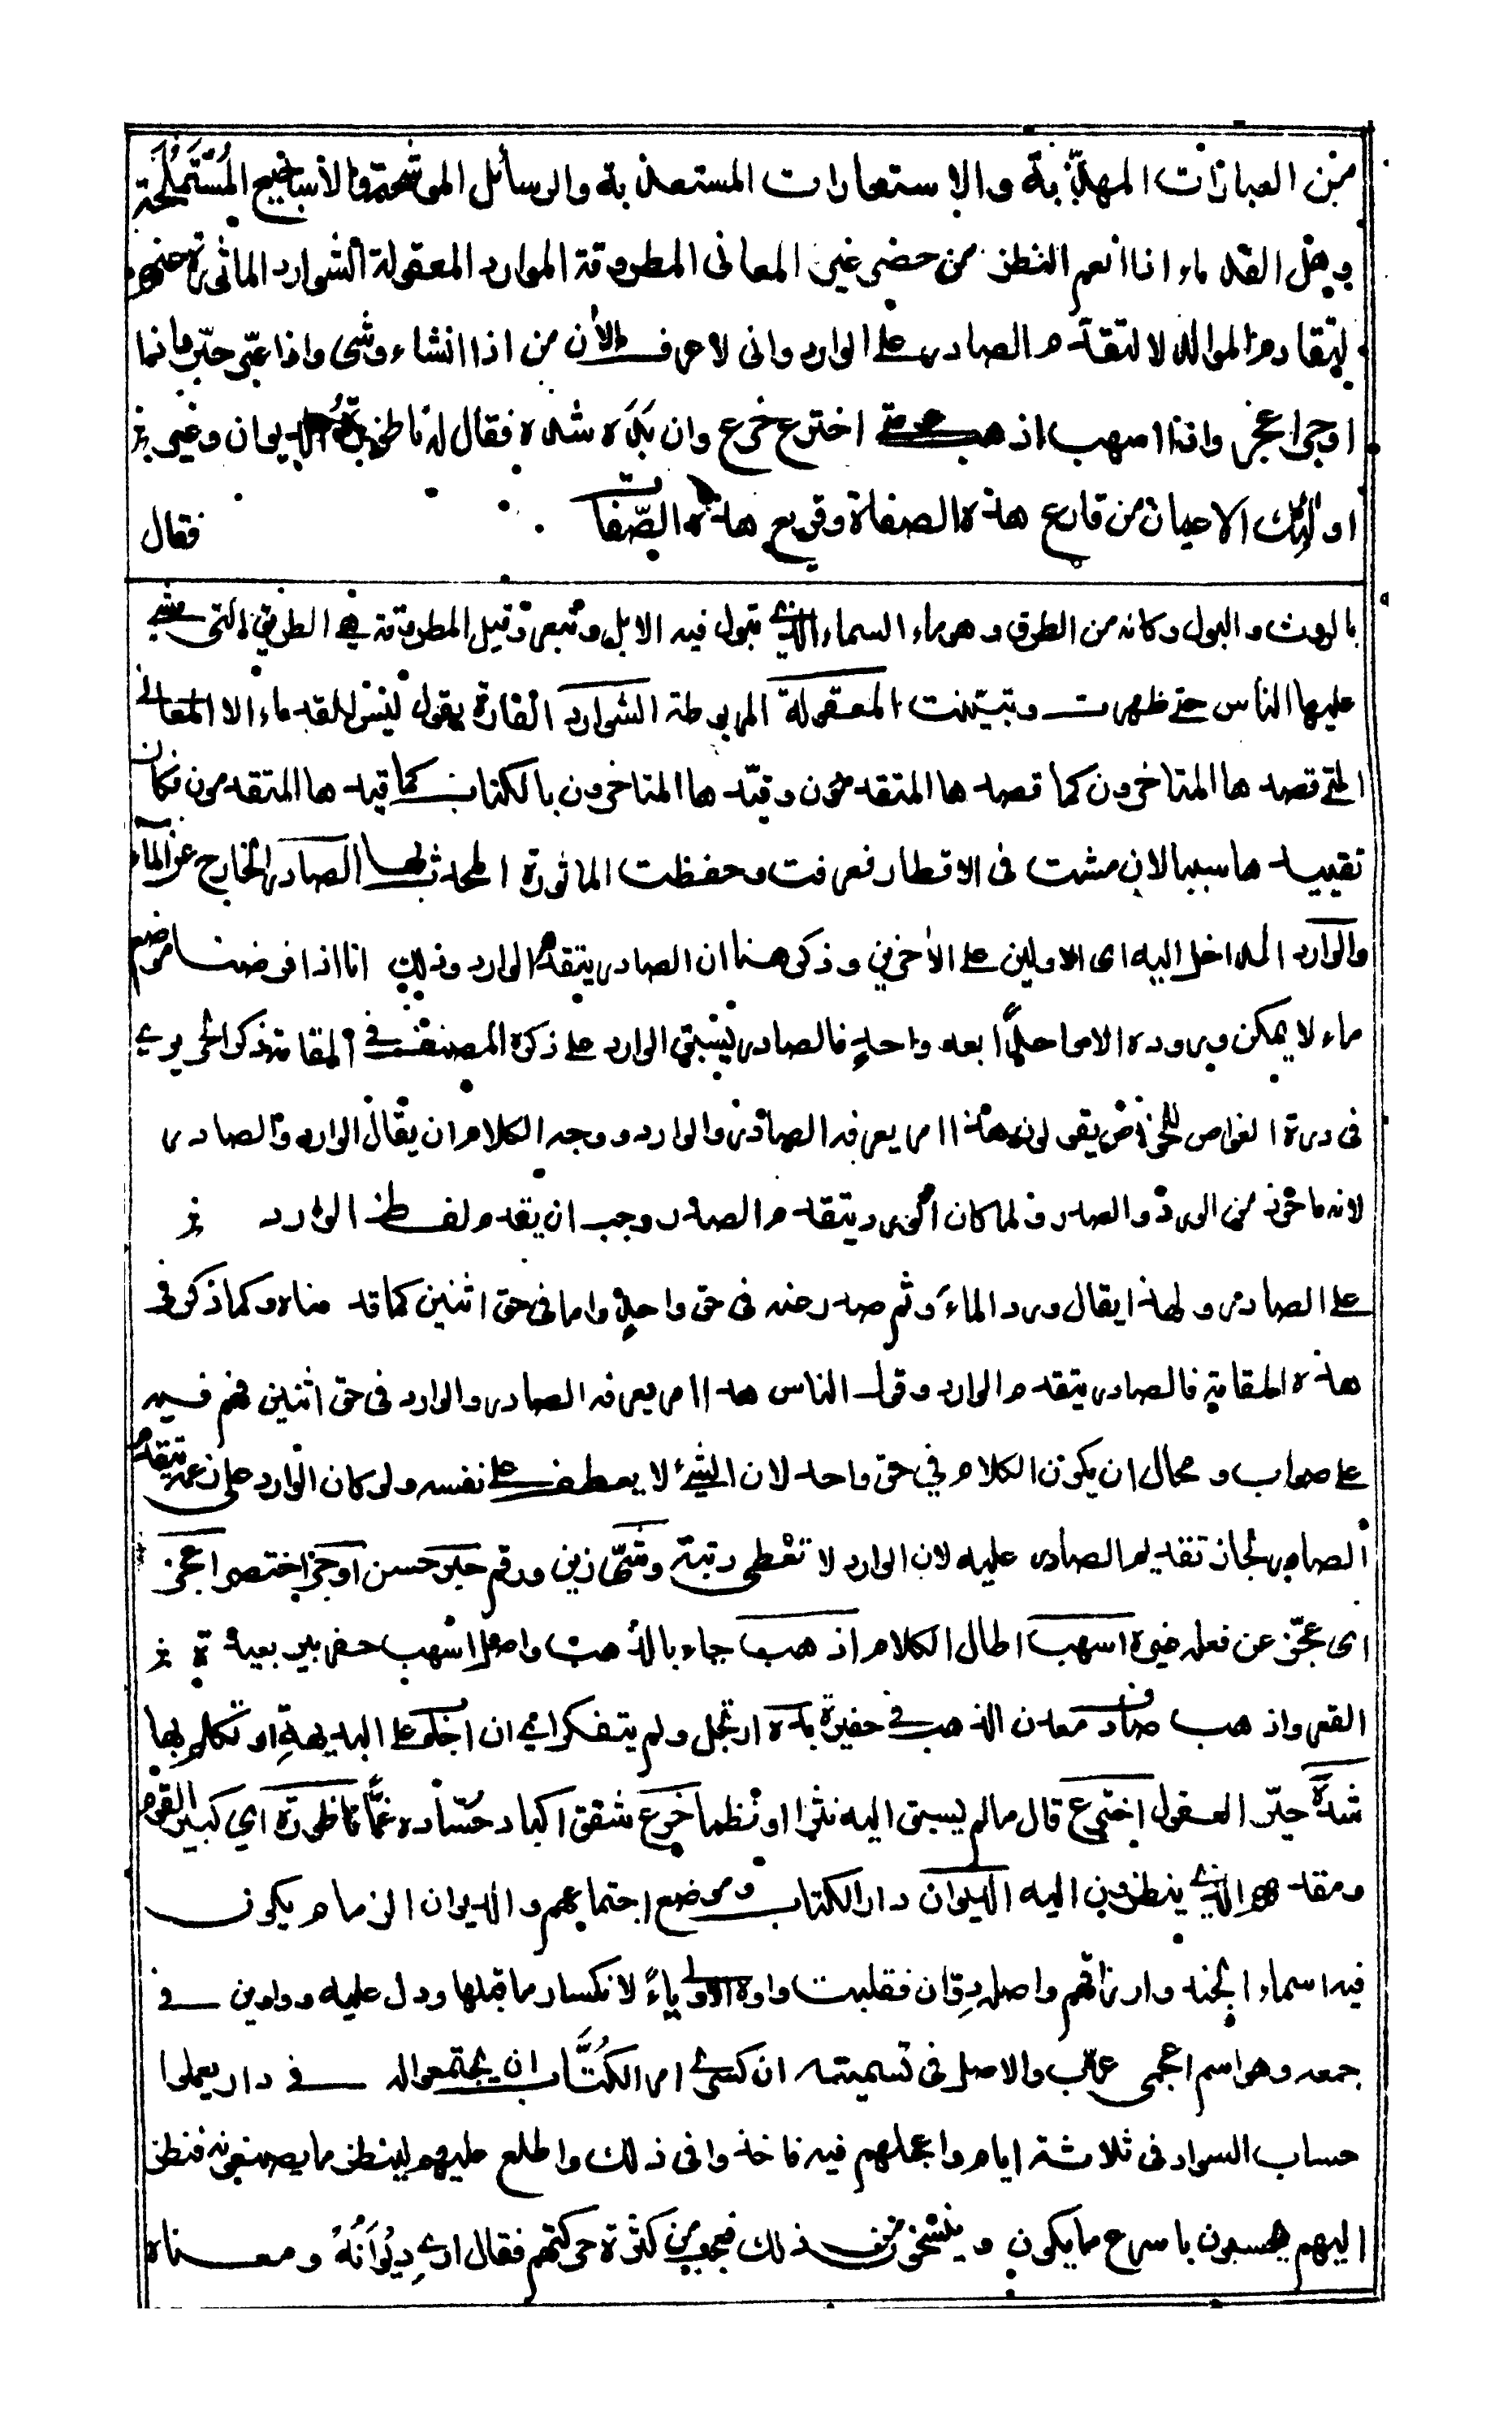 من العبارات المهذبة والاستعارات المستعذبة والرسائل الموشحة والاساجيع المستملحة
وهل للقدماء اذا انعم النظر من حضر غير المعاني المطروقة الموارد المعقولة الشوارد الماثورة عنهم
لتقادم الموالد لا لتقدم الصادر على الوارد واني لاعرف الان من اذا انشاء وشى واذا عبّر حبّر وانما
اوجز اعجز واذا اسهب اذهب ومتى اخترع خرع وان بَدَه شده فقال له ناطورة الديوان وعين
اولئك الاعيان من قارع هذه الصفاة وقريع هذه الصّفات فقال
بالروث والبول وكانه من الطرق وهو ماء السماء الذي تبول فيه الابل وتبعر وقيل المطروقة هي الطريق التي مشى
عليها الناس حتى ظهرت وتبيّنت المعقولة المربوطة الشوارد الفارة يقول ليس للقدماء الا المعاني
التي قصدها المتاخرون كما قصدها المتقدمون وقيّدها المتاخرون بالكتاب كما قيدها المتقدمون فكان
تقييدها سببا لان مشت في الاقطار فعرفت وحفظت الماثورة المحدث بها الصادر الخارج عن الماء
والوارد الداخل اليه اى الاولين على الأخرين وذكر هنا ان الصادر يتقدم الوارد وذلك انا اذا فرضنا موضع
ماء لا يمكن وروده الا واحدًا بعد واحدٍ فالصادر يسبق الوارد على ذكره المصنف في المقامة ذكر الحريرى
في درة الغواص للخواص يقولون هذا امر يعرفه الصادر والوارد ووجه الكلام ان يقال الوارد والصادر
لانه ماخوذ من الورد والصدر ولما كان الورد يتقدم الصدر وجب ان يقدم لفظ الوارد
على الصادر ولهذا يقال ورد الماءَ وثم صدر عنه في حق واحدٍ واما في حق اثنين كما قدمناه وكما ذكر في
هذه المقامة فالصادر يتقدم الوارد وقول الناس هذا امر يعرفه الصادر والوارد في حق اثنين فهم فيه
على صواب ومحال ان يكون الكلام في حق واحد لان الشيء لا يعطف على نفسه ولو كان الوارد على زعمه يتقدم
الصادر لجاز تقديم الصادر عليه لان الوارد لا تعطى رتبة وشّى زين ورقم حبر حسن اوجز اختصر اعجز
اى عجّز عن فعله غيره اسهب اطال الكلام اذهب جاء بالذهب واصل اسهب حفر بير بعيدة
القعر واذهب صادف معدن الذهب في حفيرة بده ارتجل ولم يتفكر اي ان اخذ على البديهة او تكلم بها
شده حيّر العقول اخترع قال مالم يسبق اليه نثرا او نظما خرع شقق اكباد حسّاده غمّا ناظورة اي كبير القوم
ومقدمهم الذي ينظرون اليه الديوان دار الكتاب وموضع اجتماعهم والديوان الزمام يكون
فيه اسماء الجند وارزاقهم واصله دِوّان فقلبت واوه الاولى ياءً لانكسار ما قبلها ودل عليه دواوين في
جمعه وهو اسم اعجمى عرّب والاصل في تسميته ان كسرى امر الكُتَّاب ان يجتمعوا له في دار يعملوا
حساب السواد في ثلاثة ايام واعجلهم فيه فاخذوا في ذلك واطلع عليهم لينظر ما يصنعون فنظر
اليهم يحسبون باسرع ما يكون وينسخون ذلك فعجب من كثرة حركتهم فقال اى دِيْوَانَهْ ومعناه